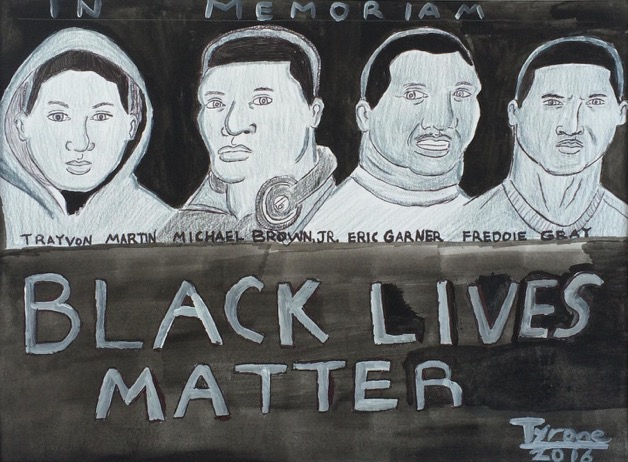 IN MEMORIAM
TRAYVON MARTIN MICHAEL BROWN, JR. ERIC GARNER FREDDIE GRAY
BLACK LIVES
MATTER
Tyrone
2016